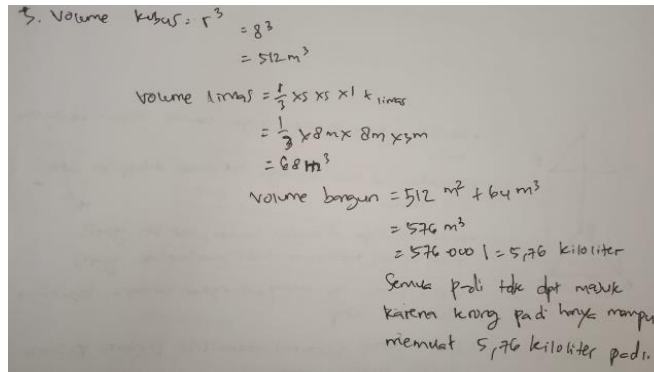 5. Volume kubus = r³
= 8³
= 512 m³
Volume limas = 1/3 x s x s x t limas
= 1/3 x 8 m x 8 m x 3 m
= 68 m³
Volume bangun = 512 m² + 64 m³
= 576 m³
= 576 000 l = 5,76 kiloliter
Semua padi tdk dpt masuk
karena krong padi hanya mampu
memuat 5,76 kiloliter padi.